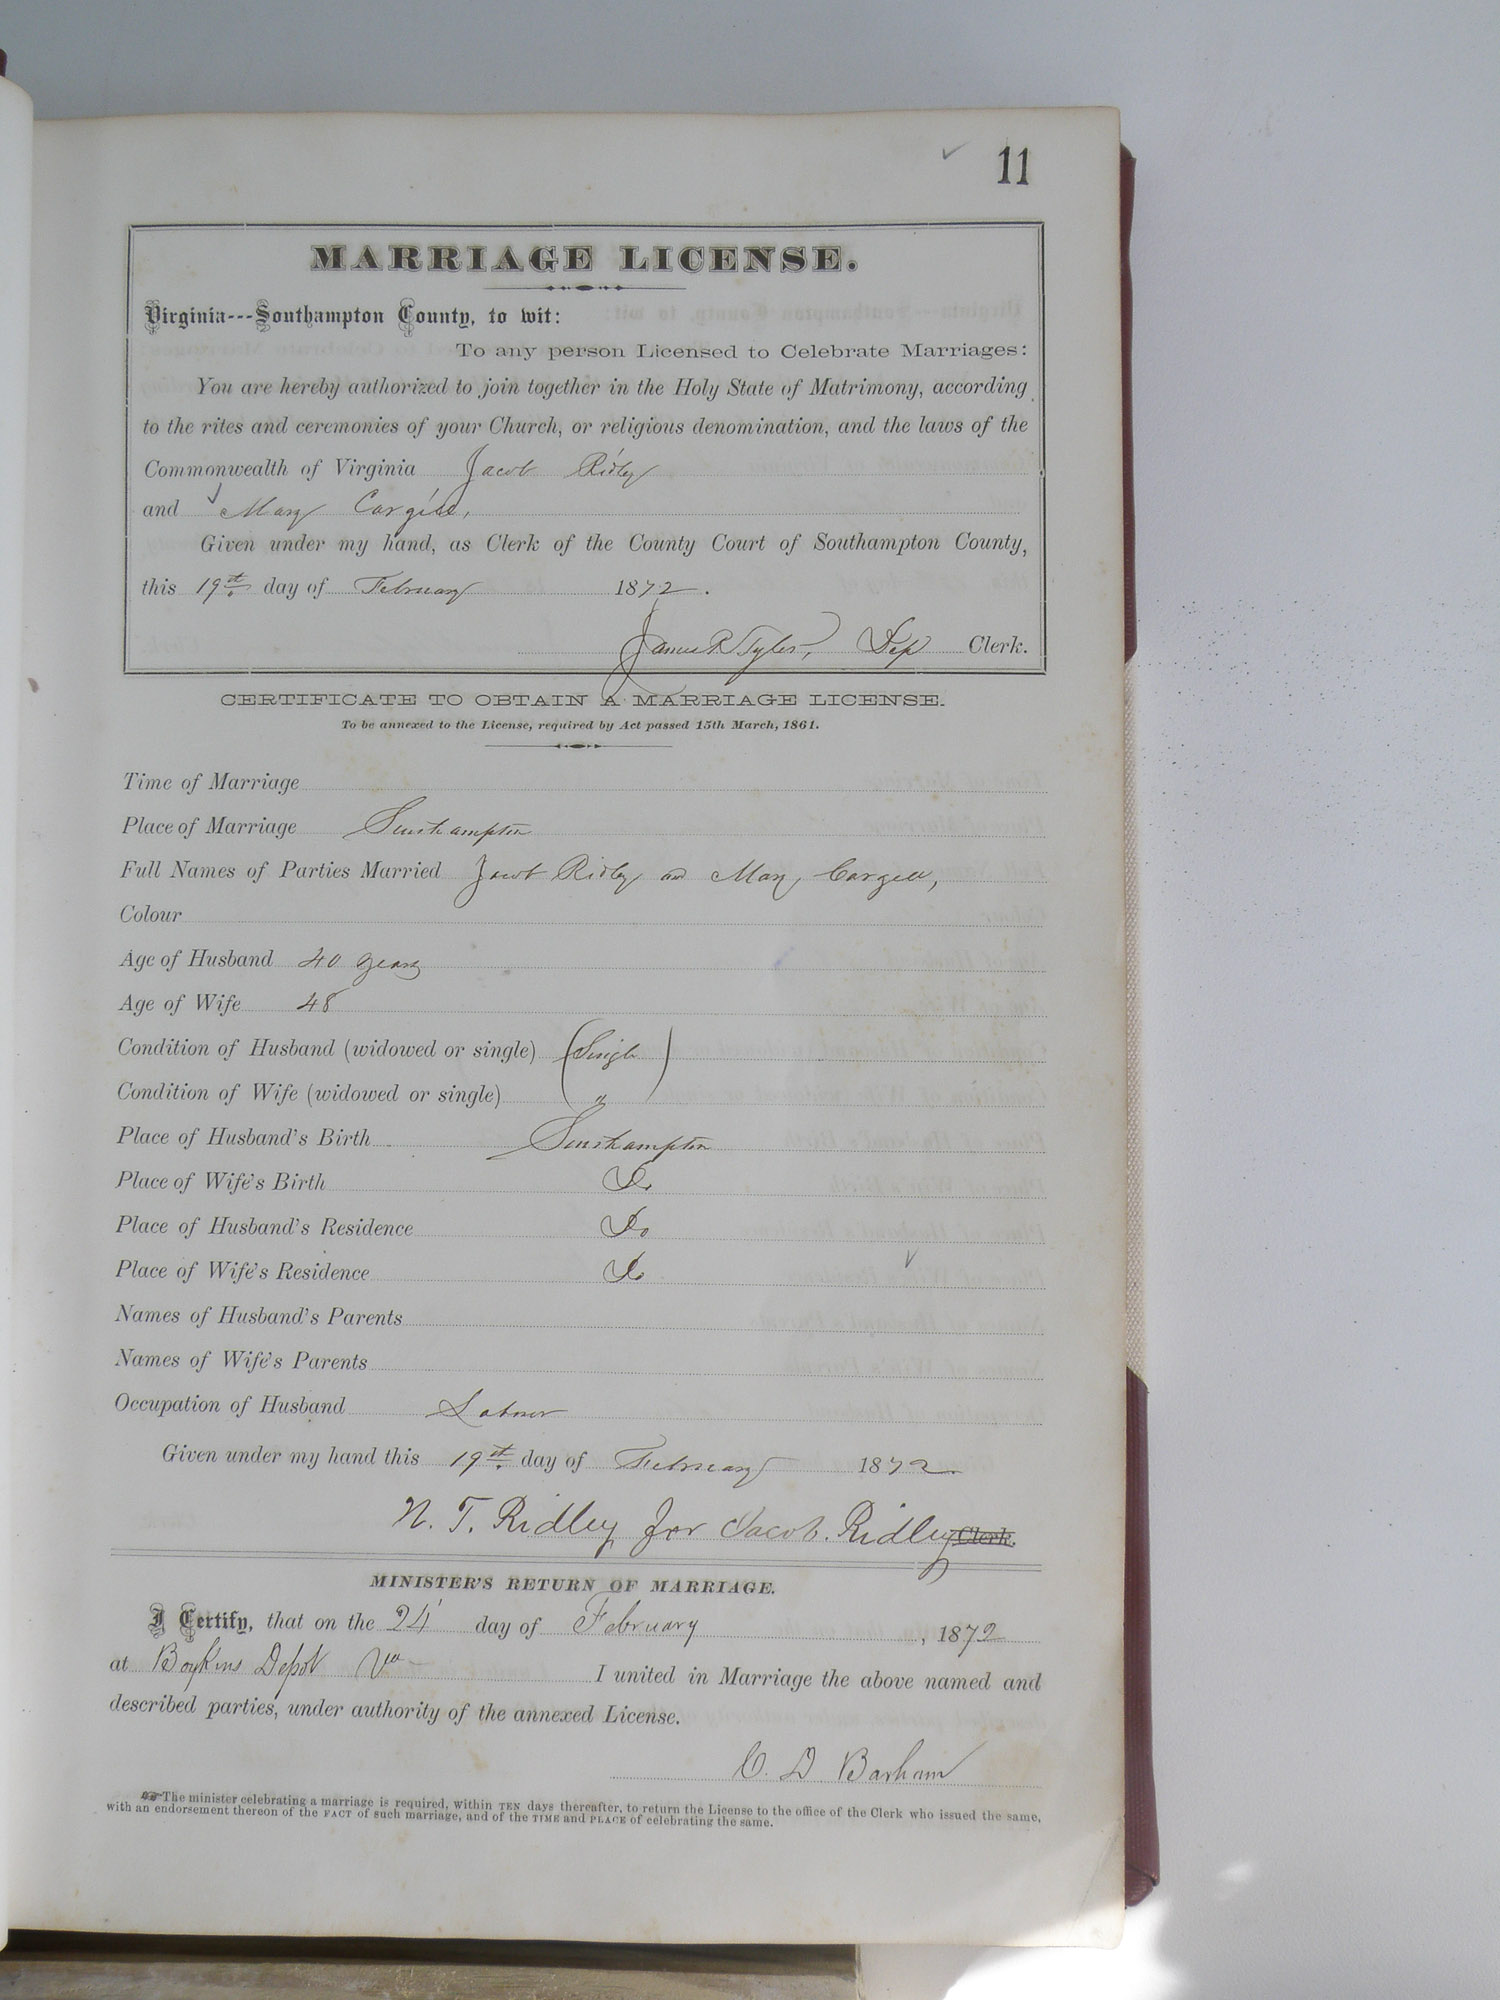 11
MARRIAGE LICENSE.
Virginia---Southampton County, to wit:
To any person Licensed to Celebrate Marriages:
You are hereby authorized to join together in the Holy State of Matrimony, according
to the rites and ceremonies of your Church, or religious denomination, and the laws of the
Commonwealth of Virginia Jacob Ridley
and Mary Cargill,
Given under my hand, as Clerk of the County Court of Southampton County,
this 19th day of February 1872.
James R Tyler, Dep Clerk.
CERTIFICATE TO OBTAIN A MARRIAGE LICENSE.
To be annexed to the License, required by Act passed 15th March, 1861.
Time of Marriage
Place of Marriage Southampton
Full Names of Parties Married Jacob Ridley and Mary Cargill,
Colour
Age of Husband 40 years
Age of Wife 48
Condition of Husband (widowed or single) (Single)
Condition of Wife (widowed or single) "
Place of Husband's Birth Southampton
Place of Wife's Birth Do
Place of Husband's Residence Do
Place of Wife's Residence Do
Names of Husband's Parents
Names of Wife's Parents
Occupation of Husband Laborer
Given under my hand this 19th day of February 1872
N. T. Ridley for Jacob. Ridley Clerk.
MINISTER'S RETURN OF MARRIAGE.
I Certify, that on the 24 day of February, 1872
at Boykins Depot Va I united in Marriage the above named and
described parties, under authority of the annexed License.
C. D Barham
The minister celebrating a marriage is required, within TEN days thereafter, to return the License to the office of the Clerk who issued the same,
with an endorsement thereon of the FACT of such marriage, and of the TIME and PLACE of celebrating the same.